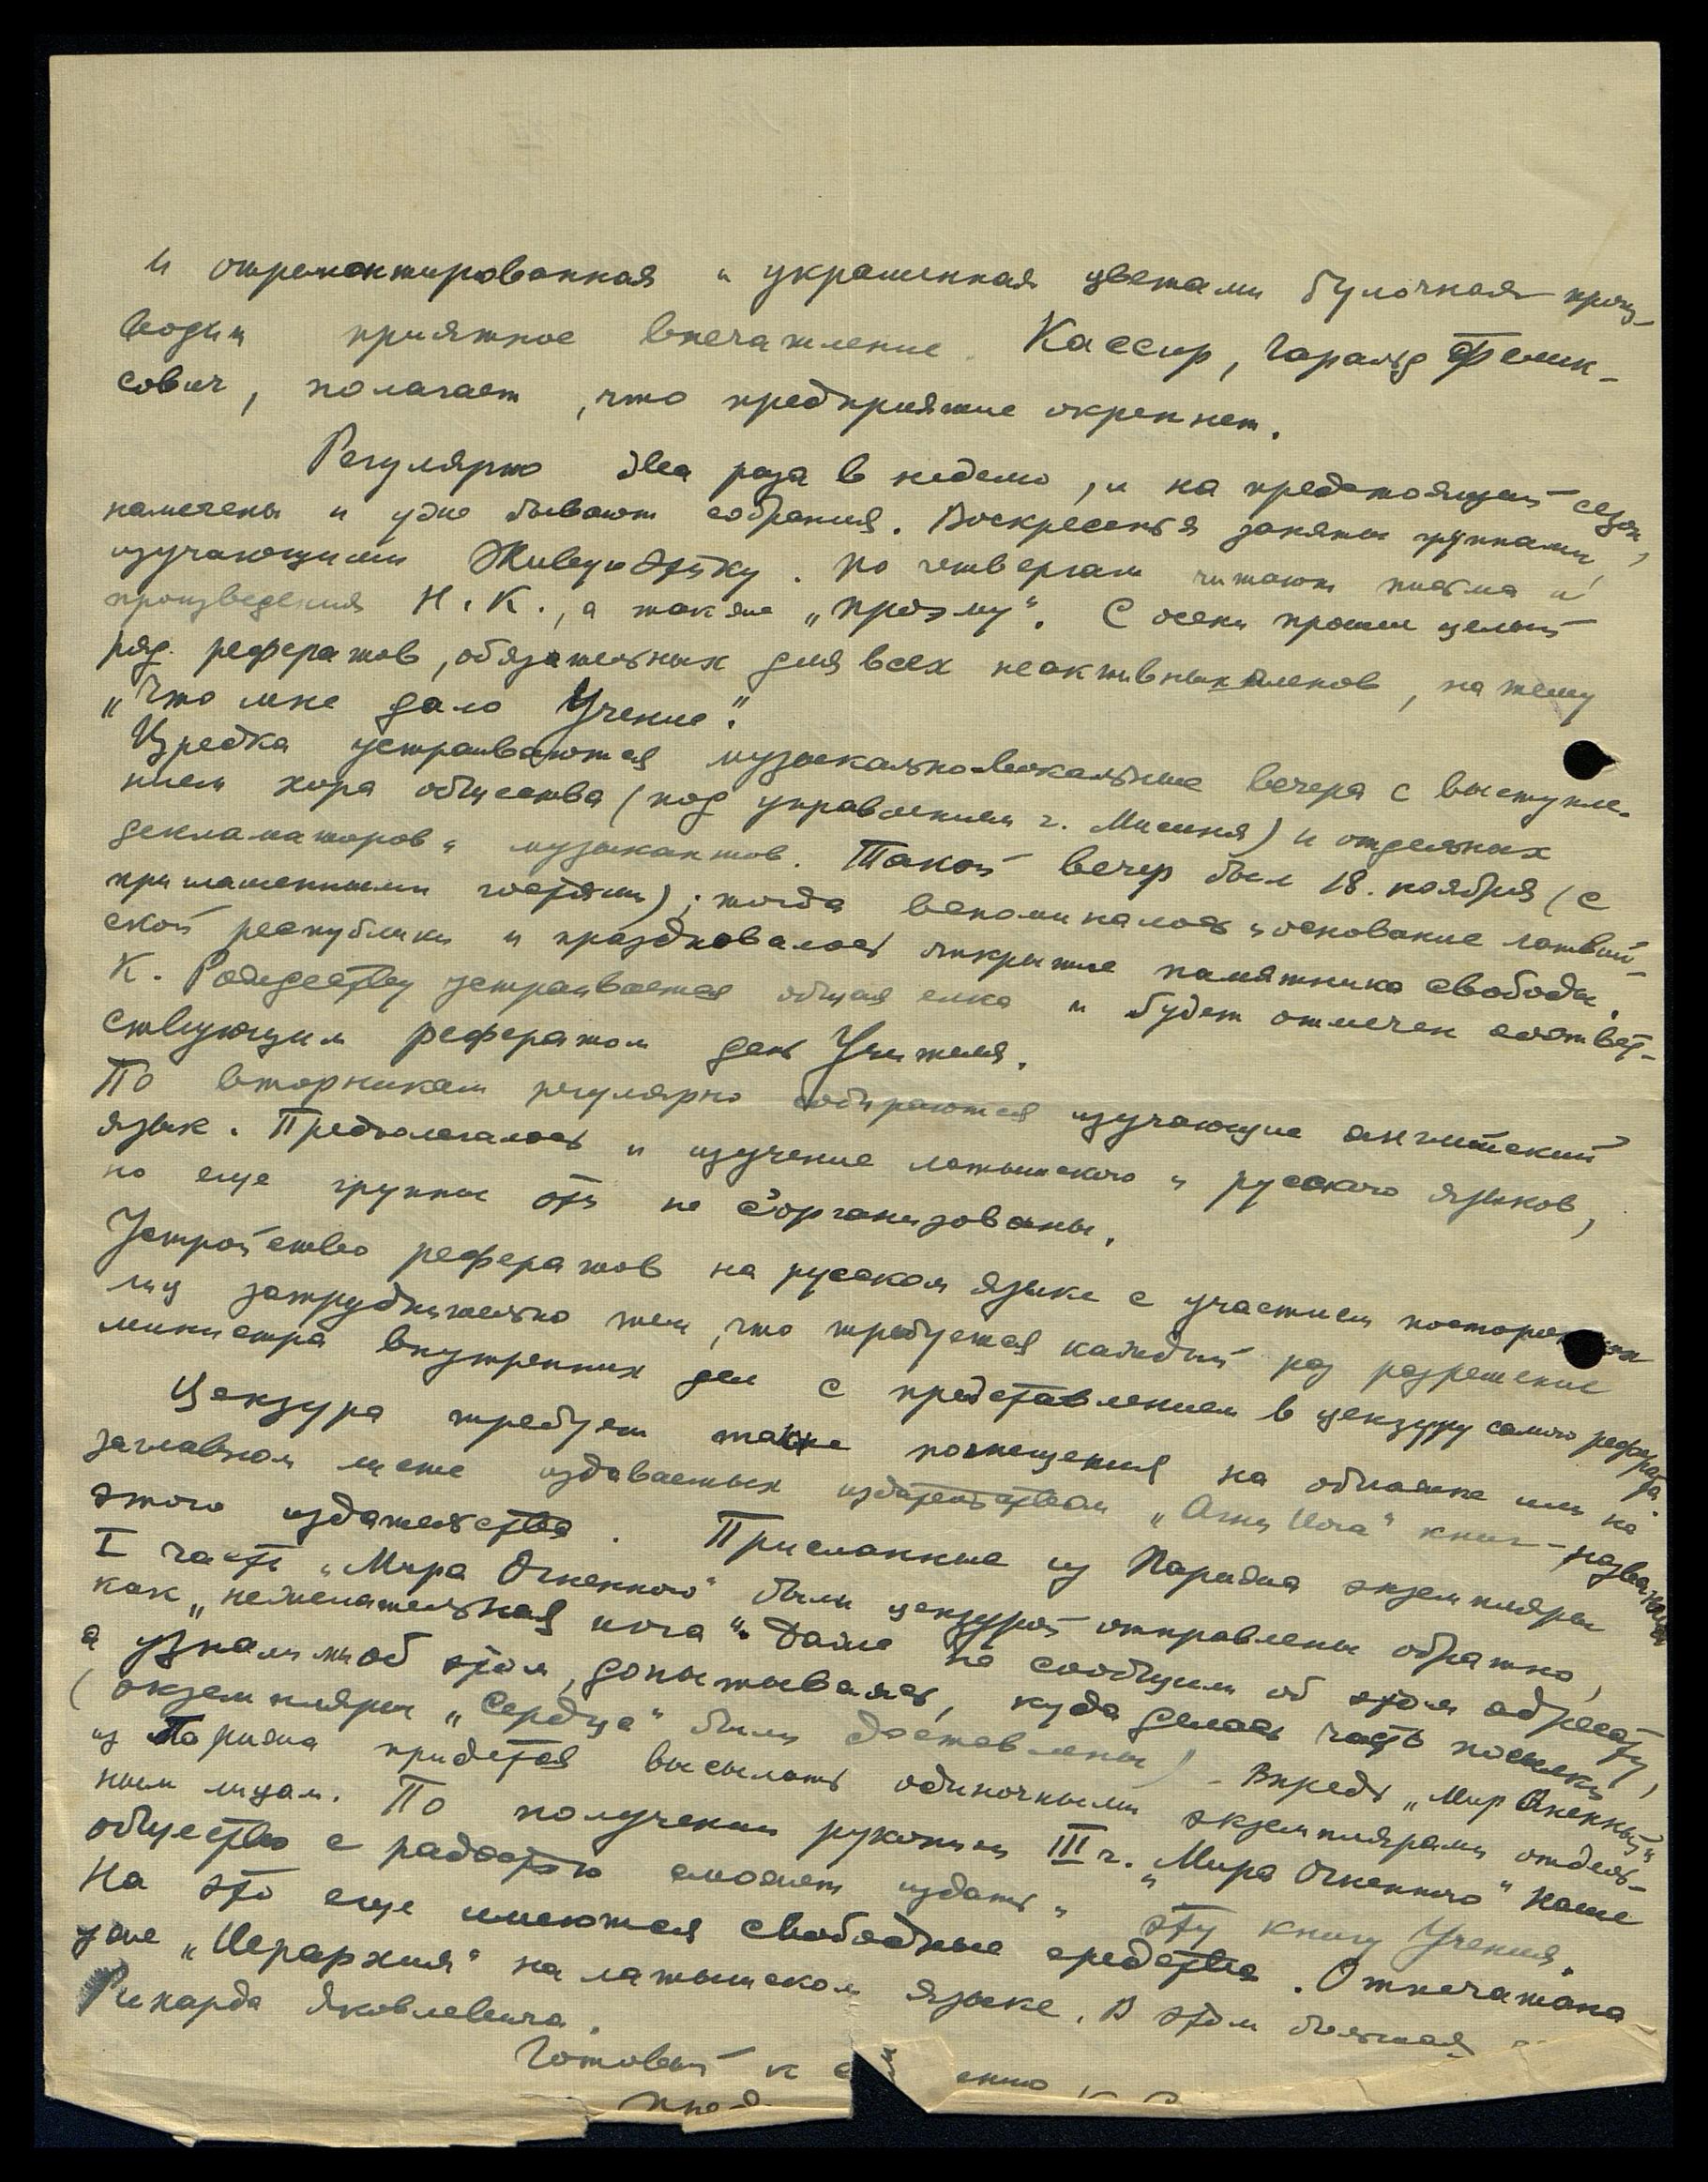 И отремонтированная и украшенная цветами булочная произ-
водит приятное впечатление. Кассир, Гаральд Феликс-
сович, полагает, что предприятие окрепнет.
Регулярно два раза в неделю, и на предстоящий сезон,
намечены и уже бывают собрания. Воскресенья заняты группами,
изучающими Живую Этику. По четвергам читают письма и
произведения Н.К., а также „прозму“. С осени прошел целый
ряд рефератов, обязательных для всех неактивных членов, на тему
„Что мне дало Учение“.
Изредка устраиваются музыкально-вокальные вечера с выступле-
нием хора общества (под управлением г. Мисиня) и отдельных
декламаторов и музыкантов. Такой вечер был 18. ноября (с
приглашенными гостями); тогда вспоминалось и основание латвий-
ской республики и праздновалось открытие памятника свободы.
К. Рождеству устраивается общая елка и будет отмечен соответ-
ствующим рефератом день Учителя.
По вторникам регулярно собираются изучающие английский
язык. Предполагалось и изучение латышского и русского языков,
но еще группы эти не сорганизованы.
Устройство рефератов на русском языке с участием посторонних
лиц затруднительно тем, что требуется каждый раз разрешение
министра внутренних дел с представлением в цензуру самого реферата.
Цензура требует также помещения на обложке или на
заглавном листе издаваемых издательством „Агни Йога“ книг – названия
этого издательства. Присланные из Парижа экземпляры
I части „Мира Огненного“ были цензурой отправлены обратно,
как „нежелательная йога“. Даже не сообщили об этом адресату,
а узнали мы об этом, допытываясь, куда делась часть посылки
(экземпляры „Сердца“ были доставлены) – Впредь „Мир Огненный“
из Парижа придется высылать одиночными экземплярами отдель-
ным лицам. По получении рукописи III ч. „Мира Огненного“ наше
общество с радостью сможет издать и эту книгу Учения.
На это еще имеются свободные средства. Отпечатана
уже „Иерархия“ на латышском языке. В этом большая
Рихарда Яковлевича.
Готовый к